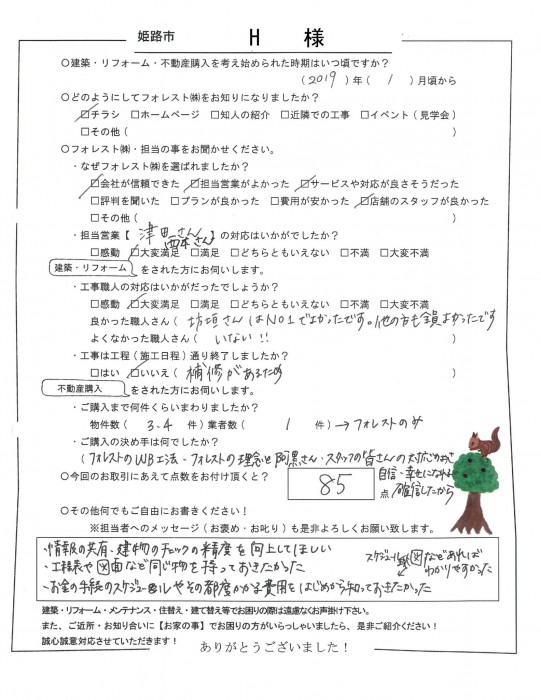 姫路市 H 様
○建築・リフォーム・不動産購入を考え始められた時期はいつ頃ですか?
(2019)年(1)月頃から
○どのようにしてフォレスト㈱をお知りになりましたか?
□チラシ □ホームページ □知人の紹介 □近隣での工事 □イベント(見学会)
□その他( )
○フォレスト㈱・担当の事をお聞かせください。
・なぜフォレスト㈱を選ばれましたか?
□会社が信頼できた □担当営業がよかった □サービスや対応が良さそうだった
□評判を聞いた □プランが良かった □費用が安かった □店舗のスタッフが良かった
□その他( )
・担当営業【 津田さん 西本さん 】の対応はいかがでしたか?
□感動 □大変満足 □満足 □どちらともいえない □不満 □大変不満
建築・リフォーム をされた方にお伺いします。
・工事職人の対応はいかがだったでしょうか?
□感動 □大変満足 □満足 □どちらともいえない □不満 □大変不満
良かった職人さん( 坊垣さんはNO1でよかったです。他の方も全員よかったです
よくなかった職人さん( いない!! )
・工事は工程(施工日程)通り終了しましたか?
□はい □いいえ( 補修があるため )
不動産購入 をされた方にお伺いします。
・ご購入まで何件くらいまわりましたか?
物件数( 3.4 件)業者数( 1 件)→フォレストのみ
・ご購入の決め手は何でしたか?
(フォレストのWB工法・フォレストの理念と阿黒さん・スタッフの皆さんの対応のよさ
自信・幸せになれると
確信したから
○今回のお取引にあえて点数をお付け頂くと? 85 点
○その他何でもご自由にお書きください!
※担当者へのメッセージ(お褒め・お叱り)も是非よろしくお願い致します。
・情報の共有、建物のチェックの精度を向上してほしい
・工程表や図面など同じ物を持っておきたかった
スケジュール 図などあれば
わかりやすかった
・お金の手続のスケジュールやその都度かかる費用をはじめから知っておきたかった
建築・リフォーム・メンテナンス・住替え・建て替え等でお困りの際は遠慮なくお声掛け下さい。
また、ご近所・お知り合いに【お家の事】でお困りの方がいらっしゃいましたら、是非ご紹介ください!
誠心誠意対応させていただきます! ありがとうございました!